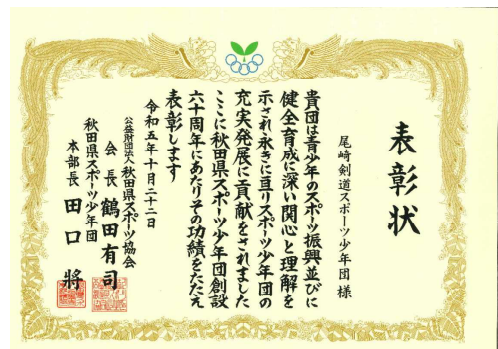 表彰状
尾崎剣道スポーツ少年団 様
貴団は青少年のスポーツ振興並びに
健全育成に深い関心と理解を
示され永きに亘りスポーツ少年団の
充実発展に貢献をされました
ここに秋田県スポーツ少年団創設
六十周年にあたりその功績をたたえ
表彰します
令和五年十月二十二日
公益財団法人秋田県スポーツ協会
会長 鶴田有司
秋田県スポーツ少年団
本部長 田口 将